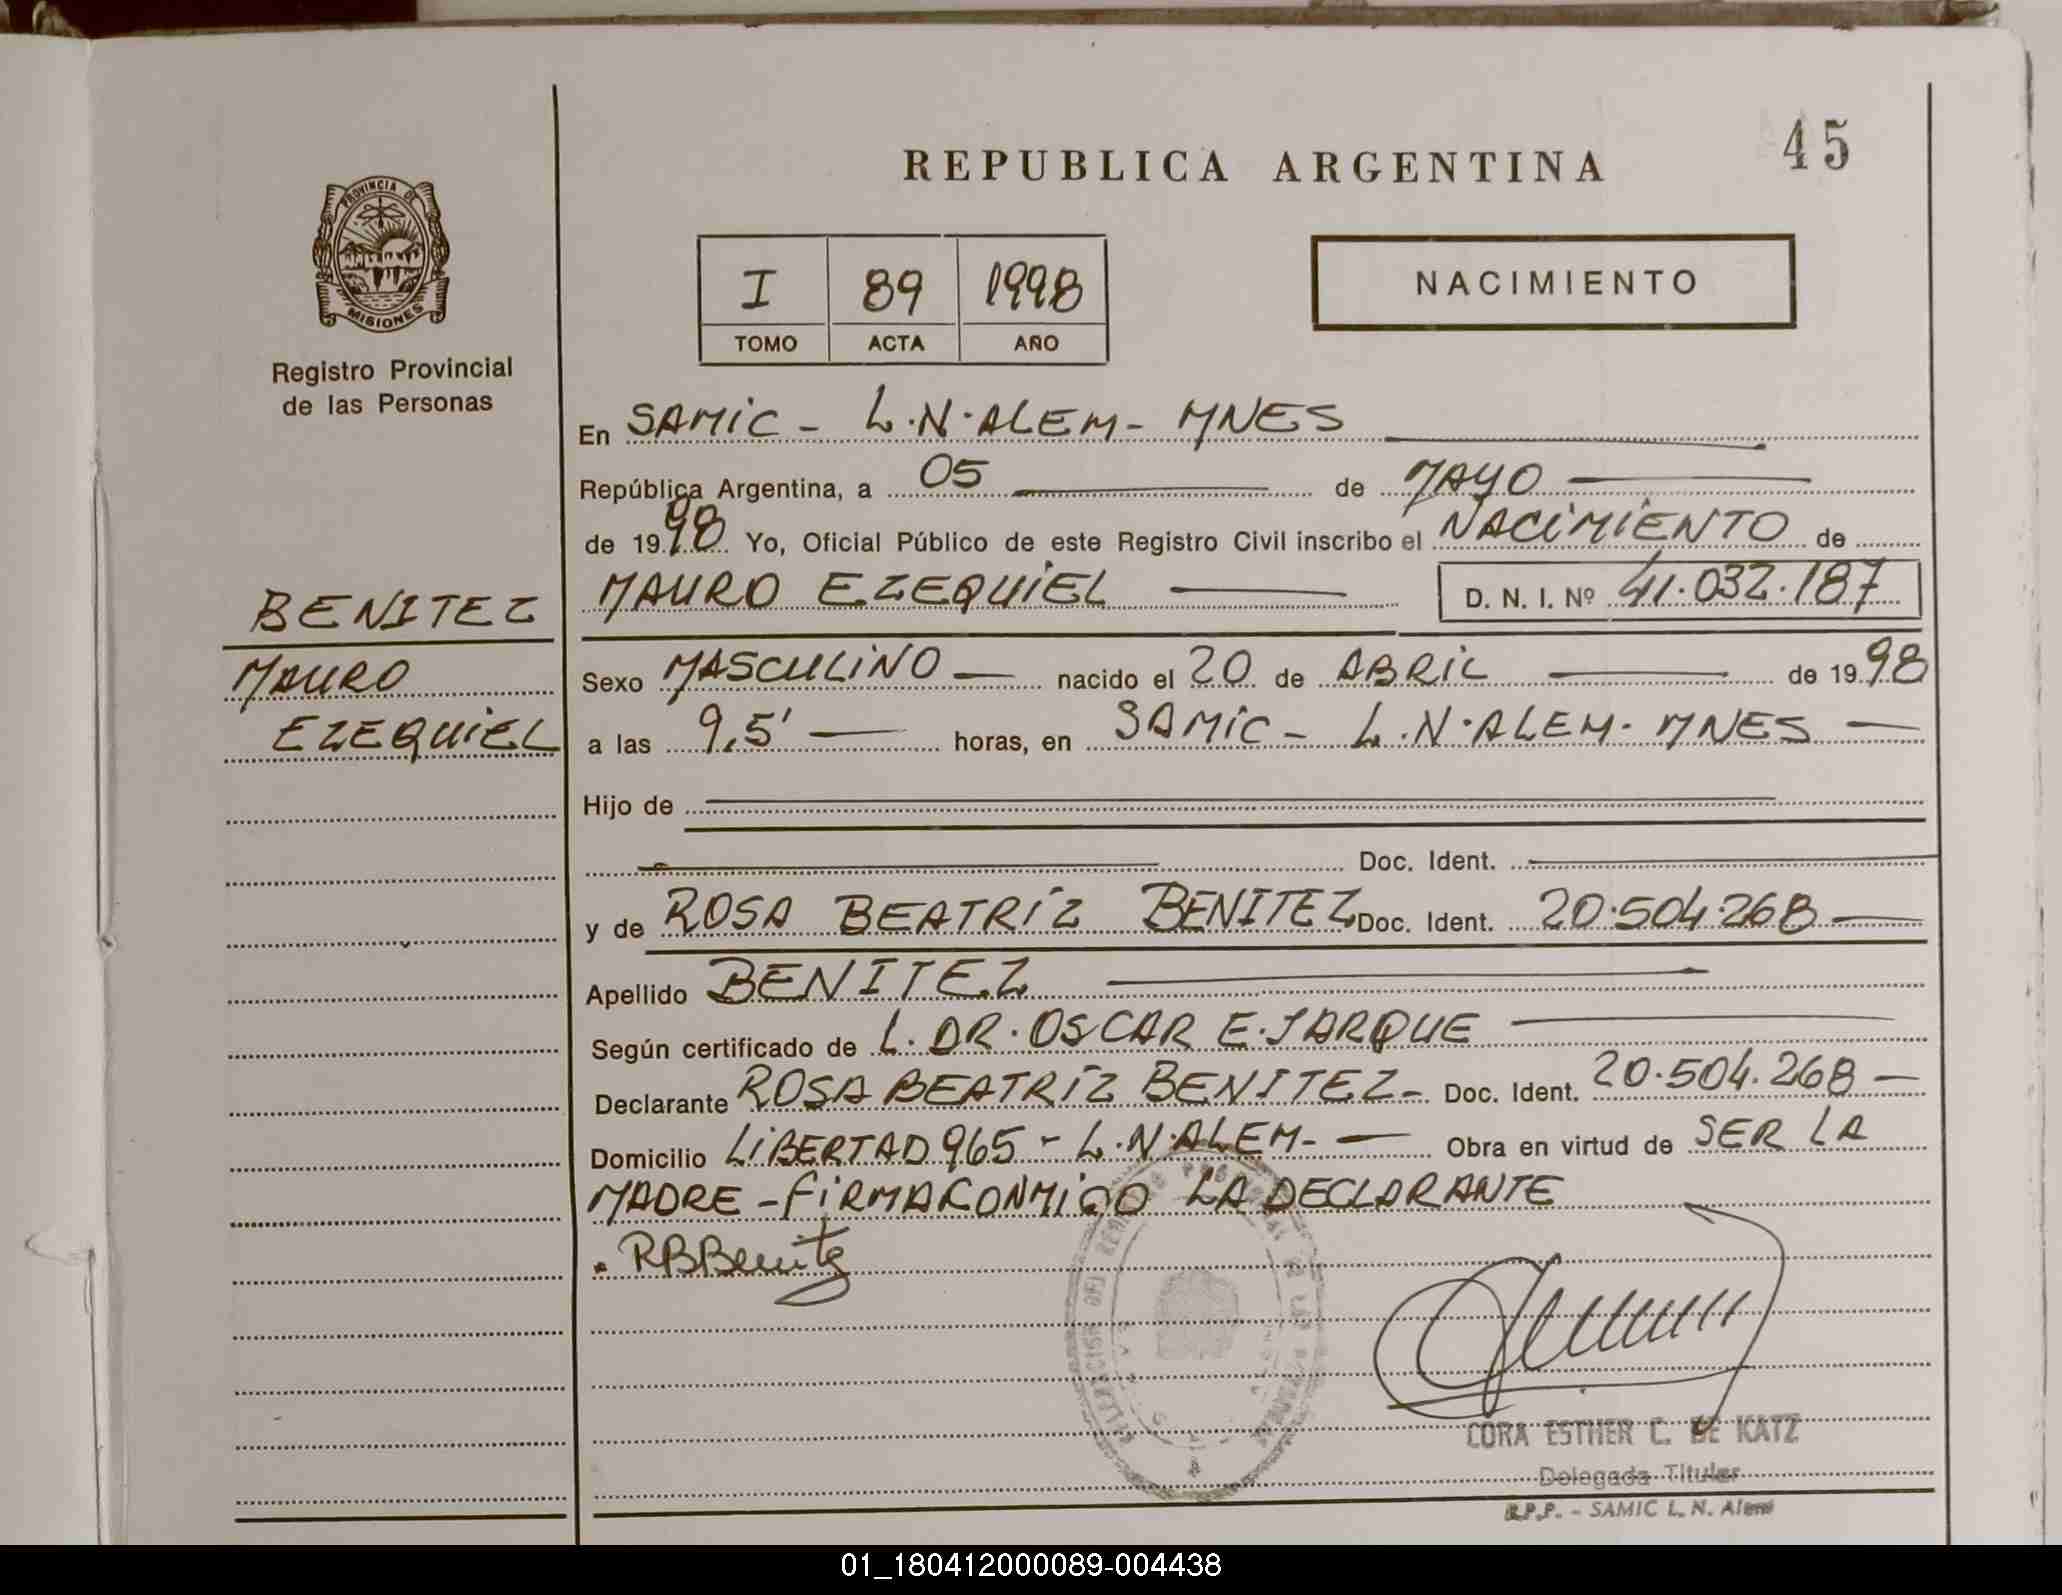 45
REPUBLICA ARGENTINA
PROVINCIA DE
MISIONES
Registro Provincial
de las Personas
I 89 1998
TOMO ACTA AÑO
NACIMIENTO
En SAMIC - L.N.ALEM - MNES
República Argentina, a 05 de MAYO
de 1998 Yo, Oficial Público de este Registro Civil inscribo el NACIMIENTO de
BENITEZ
MAURO
EZEQUIEL
MAURO EZEQUIEL D. N. I. Nº 41.032.187
Sexo MASCULINO nacido el 20 de ABRIL de 1998
a las 9,5' horas, en SAMIC - L.N.ALEM - MNES
Hijo de
Doc. Ident.
y de ROSA BEATRIZ BENITEZ Doc. Ident. 20.504.268
Apellido BENITEZ
Según certificado de L. DR. OSCAR E. JARQUE
Declarante ROSA BEATRIZ BENITEZ - Doc. Ident. 20.504.268
Domicilio LIBERTAD 965 - L.N.ALEM - Obra en virtud de SER LA
MADRE - FIRMA CONMIGO LA DECLARANTE
RBBenitez
CORA ESTHER C. DE KATZ
Delegada Titular
R.P.P. - SAMIC L. N. Alem
01_180412000089-004438